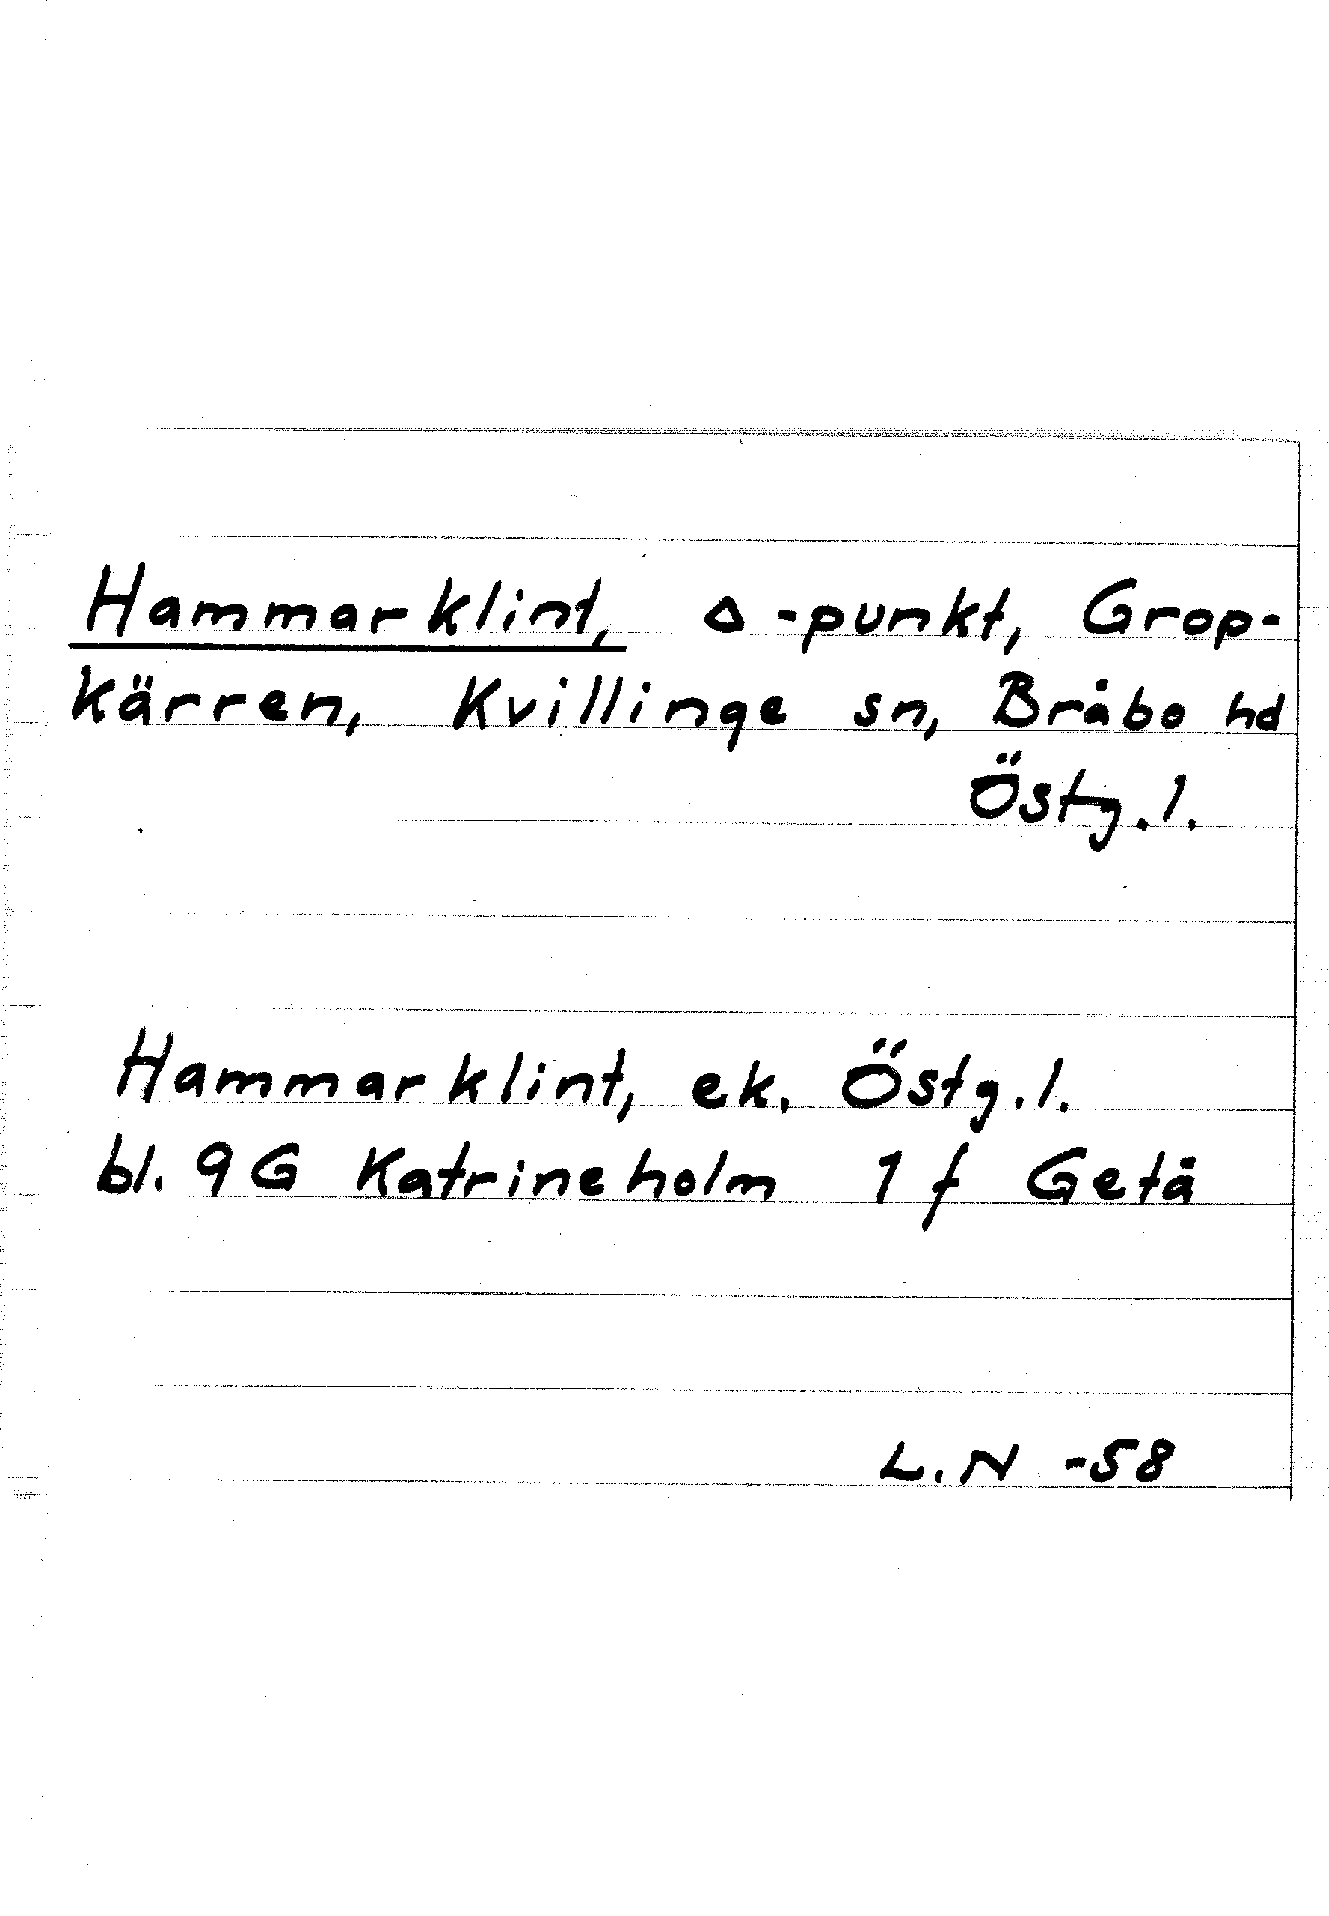 Hammarklint, Δ-punkt, Grop-
kärren, Kvillinge sn, Bråbo hd
Östg.l.
Hammarklint, ek. Östg.l.
bl. 9G Katrineholm 1 f Getå
L.N -58